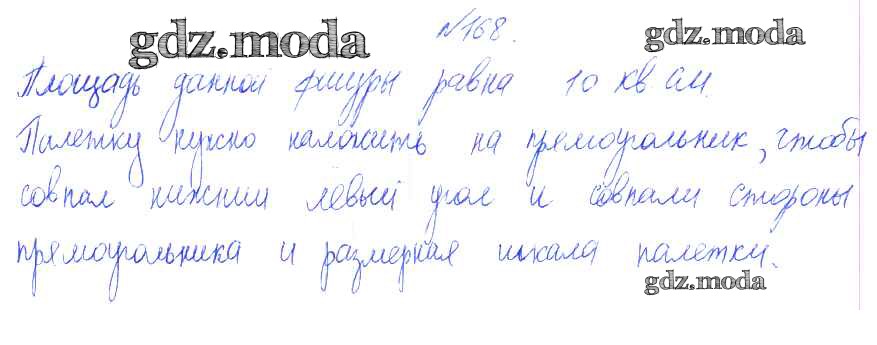 gdz.moda №168. gdz.moda
Площадь данной фигуры равна 10 кв см.
Палетку нужно наложить на прямоугольник, чтобы
совпал нижний левый угол и совпали стороны
прямоугольника и размерная шкала палетки.
gdz.moda